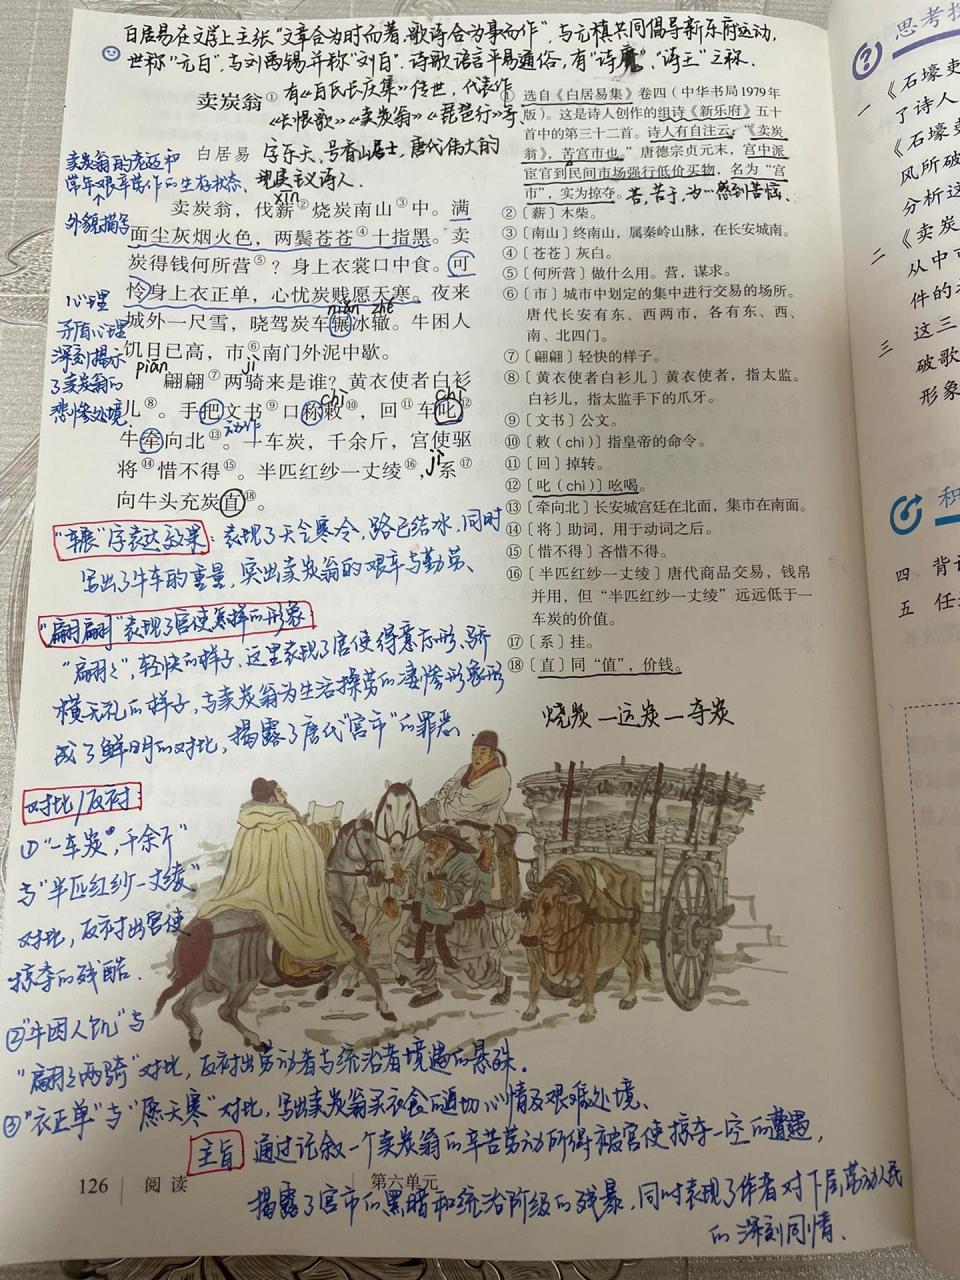 白居易在文学上主张"文章合为时而著,歌诗合为事而作",与元稹共同倡导新乐府运动,
世称"元白",与刘禹锡并称"刘白".诗歌语言平易通俗,有"诗魔"、"诗王"之称.
卖炭翁①
有《白氏长庆集》传世,代表作
《长恨歌》《卖炭翁》《琵琶行》等、
白居易
字乐天,号香山居士,唐代伟大的
现实主义诗人.
卖炭翁的
常年艰辛劳作的生存状态.
外貌描写
xīn
卖炭翁,伐薪②烧炭南山③中。满
面尘灰烟火色,两鬓苍苍④十指黑。卖
炭得钱何所营⑤?身上衣裳口中食。可
怜身上衣正单,心忧炭贱愿天寒。夜来
niǎn zhé
城外一尺雪,晓驾炭车辗冰辙。牛困人
饥日已高,市⑥南门外泥中歇。
心理
矛盾心理
深刻揭示
了卖炭翁的
悲惨处境.
piān
jì
翩翩⑦两骑来是谁?黄衣使者白衫
chì
chì
儿⑧。手把文书⑨口称敕⑩,回⑪车叱⑫
动作
牛牵向北⑬。一车炭,千余斤,宫使驱
将⑭惜不得⑮。半匹红纱一丈绫⑯,系⑰
jì
向牛头充炭直⑱。
①选自《白居易集》卷四(中华书局1979年
版)。这是诗人创作的组诗《新乐府》五十
首中的第三十二首。诗人有自注云:"《卖炭
翁》,苦宫市也。"唐德宗贞元末,宫中派
宦官到民间市场强行低价买物,名为"宫
市",实为掠夺。
苦,苦于,为…感到苦恼、
②〔薪〕木柴。
③〔南山〕终南山,属秦岭山脉,在长安城南。
④〔苍苍〕灰白。
⑤〔何所营〕做什么用。营,谋求。
⑥〔市〕城市中划定的集中进行交易的场所。
唐代长安有东、西两市,各有东、西、
南、北四门。
⑦〔翩翩〕轻快的样子。
⑧〔黄衣使者白衫儿〕黄衣使者,指太监。
白衫儿,指太监手下的爪牙。
⑨〔文书〕公文。
⑩〔敕(chì)〕指皇帝的命令。
⑪〔回〕掉转。
⑫〔叱(chì)〕吆喝。
⑬〔牵向北〕长安城宫廷在北面,集市在南面。
⑭〔将〕助词,用于动词之后。
⑮〔惜不得〕吝惜不得。
⑯〔半匹红纱一丈绫〕唐代商品交易,钱帛
并用,但"半匹红纱一丈绫"远远低于一
车炭的价值。
⑰〔系〕挂。
⑱〔直〕同"值",价钱。
烧炭—运炭—夺炭
"辗"字表达效果:表现了天气寒冷,路已结冰,同时
写出了牛车的重量,突出卖炭翁的艰辛与勤劳、
"翩翩"表现了宫使怎样的形象
"翩々",轻快的样子,这里表现了宫使得意忘形、骄
横无礼的样子,与卖炭翁为生活操劳的凄惨形象形
成了鲜明的对比,揭露了唐代"宫市"的罪恶.
对比/反衬:
①"一车炭,千余斤"
与"半匹红纱一丈绫"
对比,反衬出宫使
掠夺的残酷.
②"牛困人饥"与
"翩々两骑"对比,反衬出劳动者与统治者境遇的悬殊。
③"衣正单"与"愿天寒"对比,写出卖炭翁买衣食的迫切心情及艰难处境、
主旨 通过记叙一个卖炭翁的辛苦劳动所得被宫使掠夺一空的遭遇,
揭露了宫市的黑暗和统治阶级的残暴,同时表现了作者对下层劳动人民
的深刻同情.
126 阅读 第六单元
思考探
一 《石壕吏
了诗人
《石壕吏
风所破
分析这
二 《卖炭
从中可
件的
三 这三
破歌
形象
积
四 背诵
五 任